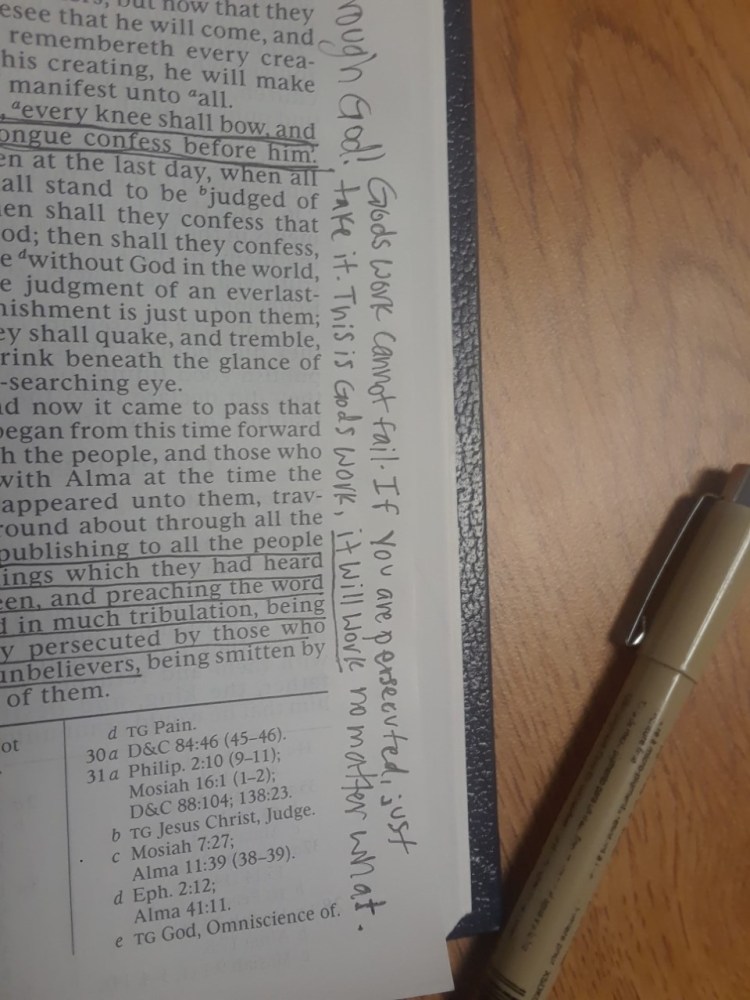 but now that they
esee that he will come, and
remembereth every crea-
his creating, he will make
manifest unto ᵃall.
, ᵃevery knee shall bow, and
ongue confess before him.
en at the last day, when all
all stand to be ᵇjudged of
en shall they confess that
od; then shall they confess,
e ᵈwithout God in the world,
e judgment of an everlast-
nishment is just upon them;
ey shall quake, and tremble,
rink beneath the glance of
-searching eye.
d now it came to pass that
began from this time forward
h the people, and those who
with Alma at the time the
appeared unto them, trav-
round about through all the
publishing to all the people
ings which they had heard
een, and preaching the word
d in much tribulation, being
y persecuted by those who
unbelievers, being smitten by
of them.
ot
d TG Pain.
30 a D&C 84:46 (45–46).
31 a Philip. 2:10 (9–11);
Mosiah 16:1 (1–2);
D&C 88:104; 138:23.
b TG Jesus Christ, Judge.
c Mosiah 7:27;
Alma 11:39 (38–39).
d Eph. 2:12;
Alma 41:11.
e TG God, Omniscience of.
Gods work cannot fail. If you are persecuted, just
rough God! take it. This is Gods work, it will work no matter what.